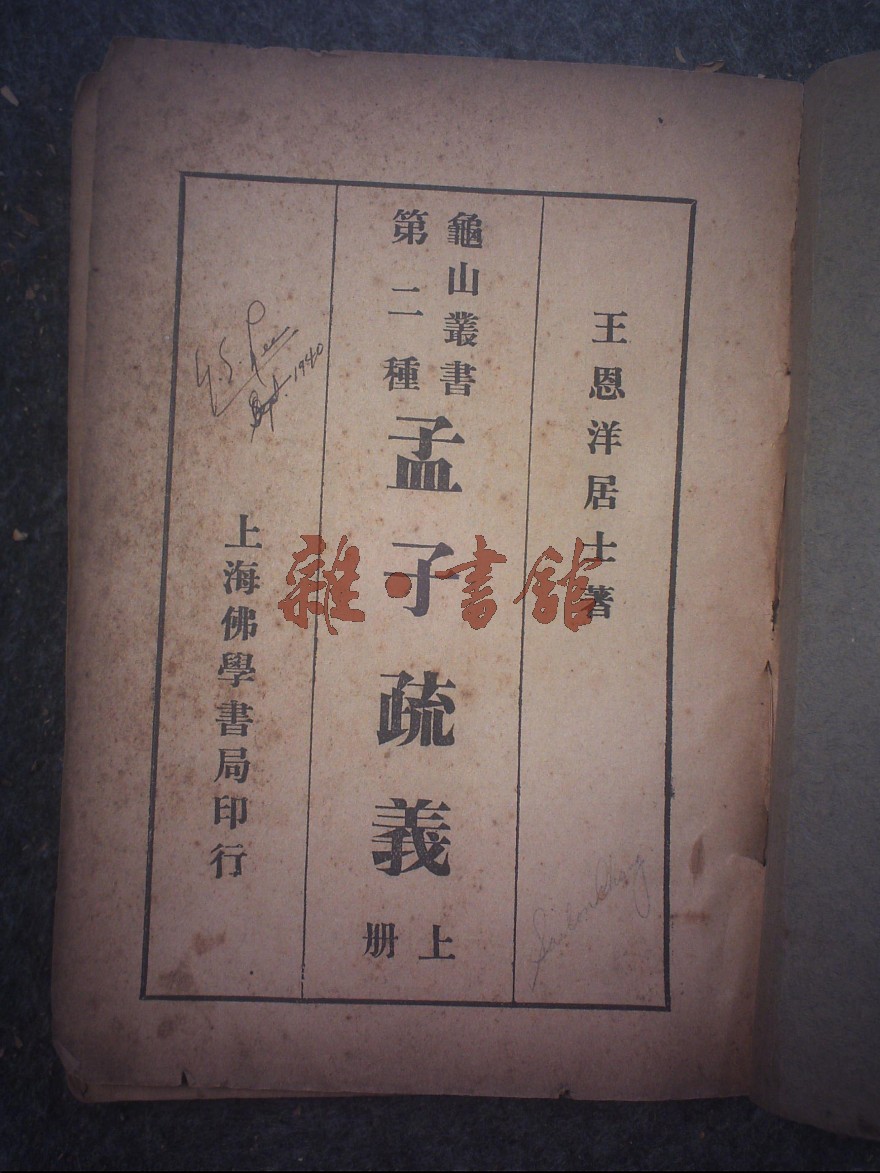 王恩洋居士著
龜山叢書
第二種
孟子疏義
上册
上海佛學書局印行
Y. S. Lee
Sept. 1940
雜·書館